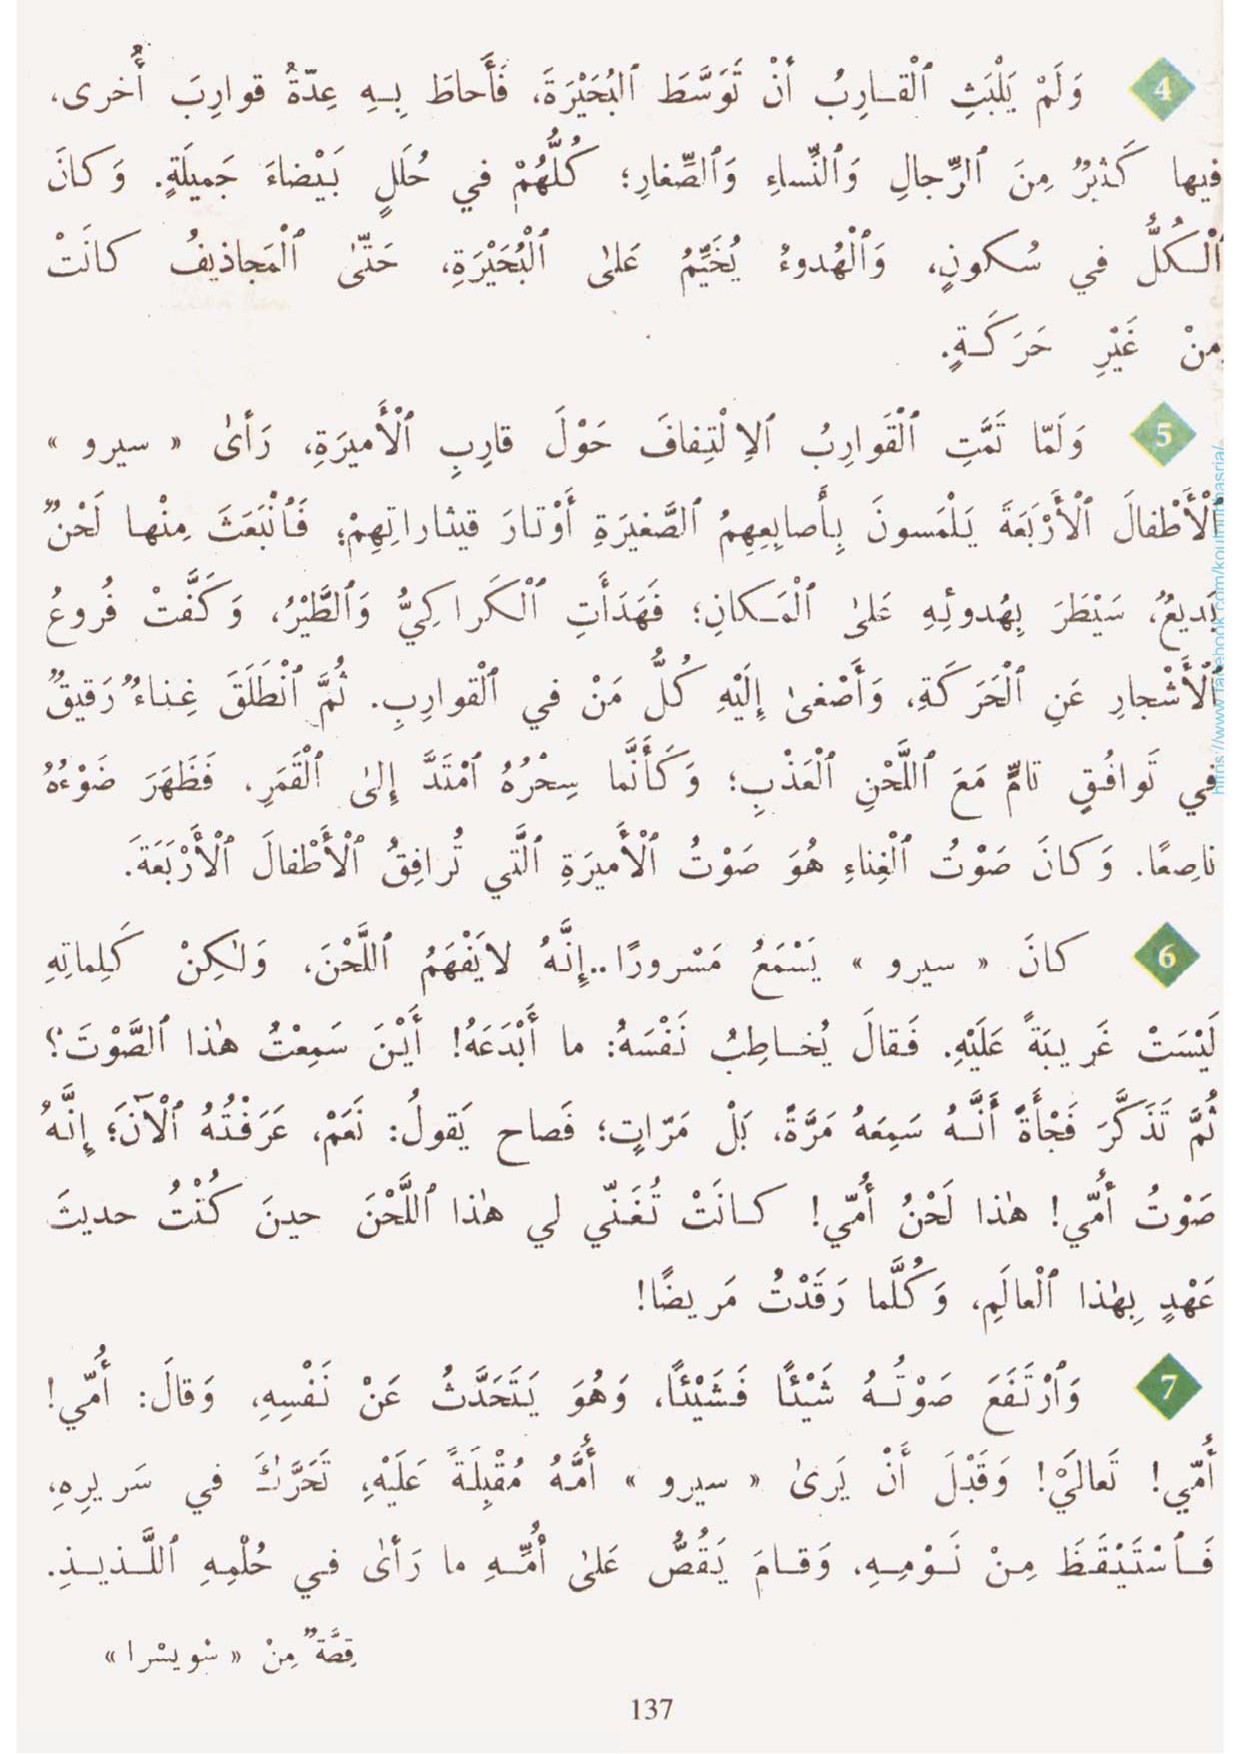 4 وَلَمْ يَلْبَثِ ٱلْقارِبُ أَنْ تَوَسَّطَ ٱلبُحَيْرَةَ، فَأَحاطَ بِهِ عِدّةُ قوارِبَ أُخرى،
فيها كَثيرٌ مِنَ ٱلرِّجالِ وَٱلنِّساءِ وَٱلصِّغارِ؛ كُلُّهُمْ في حُلَلٍ بَيْضاءَ جَميلَةٍ. وَكانَ
ٱلْكُلُّ في سُكونٍ، وَٱلْهُدوءُ يُخَيِّمُ عَلىٰ ٱلْبُحَيْرَةِ، حَتّىٰ ٱلْمَجاذيفُ كانَتْ
مِنْ غَيْرِ حَرَكَةٍ.
5 وَلَمّا تَمَّتِ ٱلْقَوارِبُ ٱلاِلْتِفافَ حَوْلَ قارِبِ ٱلْأَميرَةِ، رَأىٰ « سيرو »
ٱلْأَطْفالَ ٱلْأَرْبَعَةَ يَلْمَسونَ بِأَصابِعِهِمُ ٱلصَّغيرَةِ أَوْتارَ قيثاراتِهِمْ؛ فَٱنْبَعَثَ مِنْها لَحْنٌ
بَديعٌ، سَيْطَرَ بِهُدوئِهِ عَلىٰ ٱلْمَكانِ؛ فَهَدَأَتِ ٱلْكَراكِيُّ وَٱلطَّيْرُ، وَكَفَّتْ فُروعُ
ٱلْأَشْجارِ عَنِ ٱلْحَرَكَةِ، وَأَصْغىٰ إِلَيْهِ كُلُّ مَنْ في ٱلْقوارِبِ. ثُمَّ ٱنْطَلَقَ غِناءٌ رَقيقٌ
في تَوافُقٍ تامٍّ مَعَ ٱللَّحْنِ ٱلْعَذْبِ؛ وَكَأَنَّما سِحْرُهُ ٱمْتَدَّ إِلىٰ ٱلْقَمَرِ، فَظَهَرَ ضَوْءُهُ
ناصِعًا. وَكانَ صَوْتُ ٱلْغِناءِ هُوَ صَوْتُ ٱلْأَميرَةِ ٱلَّتي تُرافِقُ ٱلْأَطْفالَ ٱلْأَرْبَعَةَ.
6 كانَ « سيرو » يَسْمَعُ مَسْرورًا..إِنَّهُ لايَفْهَمُ ٱللَّحْنَ، وَلٰكِنْ كَلِماتِهِ
لَيْسَتْ غَريبَةً عَلَيْهِ. فَقالَ يُخاطِبُ نَفْسَهُ: ما أَبْدَعَهُ! أَيْنَ سَمِعْتُ هٰذا ٱلصَّوْتَ؟
ثُمَّ تَذَكَّرَ فَجْأَةً أَنَّهُ سَمِعَهُ مَرَّةً، بَلْ مَرّاتٍ؛ فَصاح يَقولُ: نَعَمْ، عَرَفْتُهُ ٱلْآنَ؛ إِنَّهُ
صَوْتُ أُمّي! هٰذا لَحْنُ أُمّي! كانَتْ تُغَنّي لي هٰذا ٱللَّحْنَ حينَ كُنْتُ حديثَ
عَهْدٍ بِهٰذا ٱلْعالَمِ، وَكُلَّما رَقَدْتُ مَريضًا!
7 وَٱرْتَفَعَ صَوْتُهُ شَيْئًا فَشَيْئًا، وَهُوَ يَتَحَدَّثُ عَنْ نَفْسِهِ، وَقالَ: أُمّي!
أُمّي! تَعالَيْ! وَقَبْلَ أَنْ يَرىٰ « سيرو » أُمَّهُ مُقْبِلَةً عَلَيْهِ، تَحَرَّكَ في سَريرِهِ،
فَٱسْتَيْقَظَ مِنْ نَوْمِهِ، وَقامَ يَقُصُّ عَلىٰ أُمِّهِ ما رَأىٰ في حُلْمِهِ ٱللَّذيذِ.
قِصَّةٌ مِنْ « سْويسْرا »
137